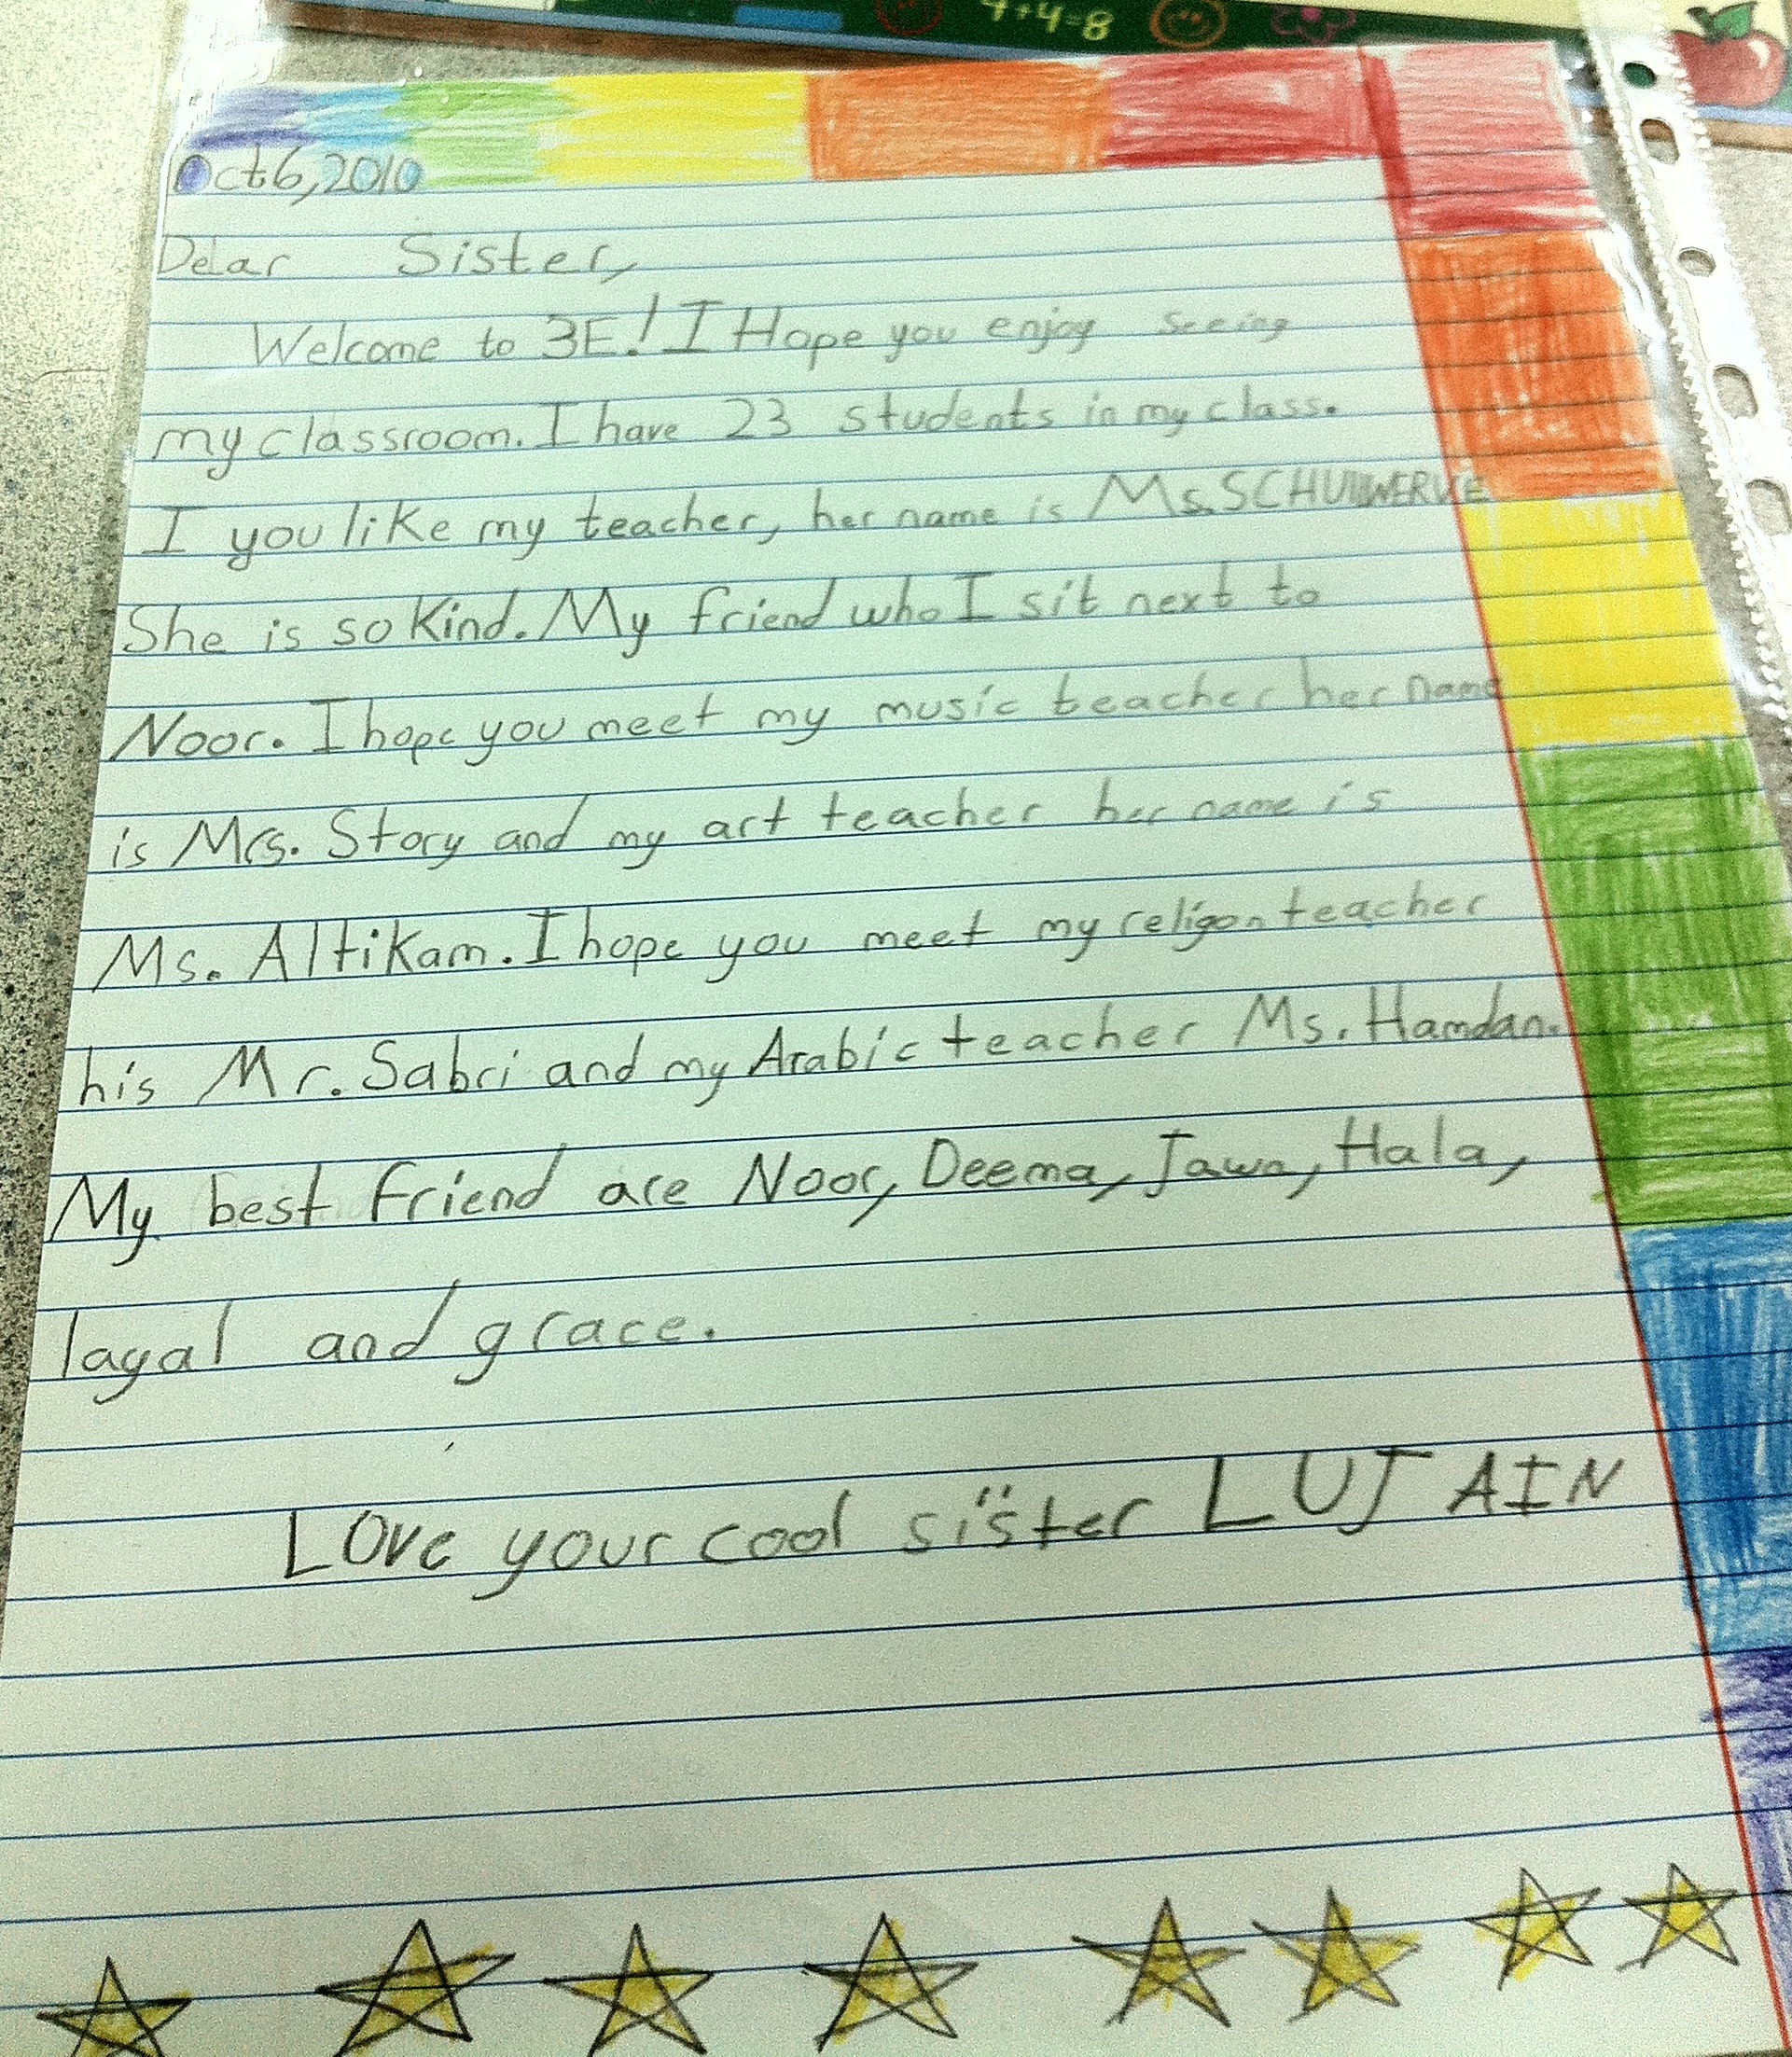 4+4=8
Oct 6, 2010
Dear Sister,
Welcome to 3E! I Hope you enjoy seeing
my classroom. I have 23 students in my class.
I you like my teacher, her name is Ms.
She is so Kind. My friend who I sit next to
Noor. I hope you meet my music teacher her name
is Mrs. Story and my art teacher her name is
Ms. Altikam. I hope you meet my religon teacher
his Mr. Sabri and my Arabic teacher Ms. Hamdan.
My best friend are Noor, Deema, Jawa, Hala,
layal and grace.
Love your cool sister LUJAIN